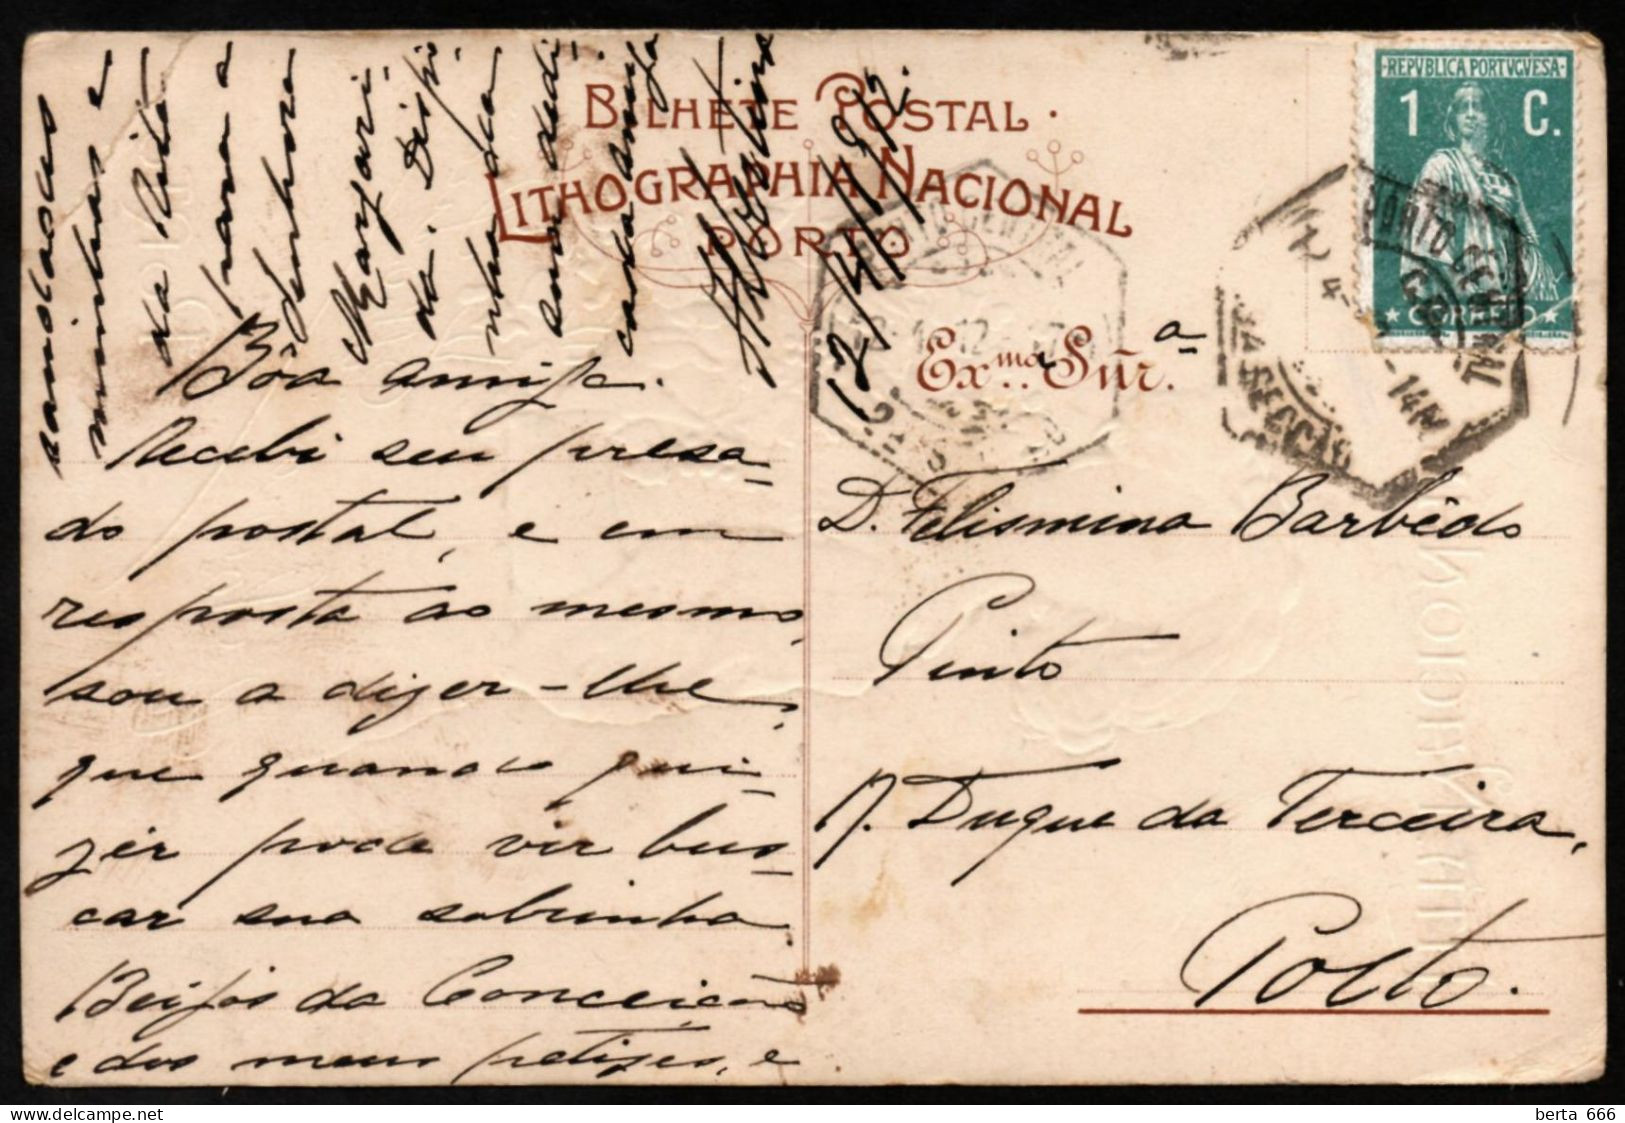 BILHETE POSTAL
LITHOGRAPHIA NACIONAL
PORTO
REPVBLICA PORTVGVESA
1 C.
CORREIO
PORTO CENTRAL
1ª SECÇÃO
Ex.ma Snr.a
D. Felismina Barbêdo
Pinto
R. Duque da Terceira,
Porto.
Bôa amiga.
Recebi seu presa-
do postal, e em
resposta ao mesmo,
sou a dizer-lhe,
que quando qui-
zer pode vir bus-
car sua sobrinha.
Beijos da Conceição
e dos meus petizes, e
saudades
minhas e
da Rita
para a
senhora
Margari-
da. Dispo-
nha da
sua dedi-
cada amiga
12/4/912.
berta 666